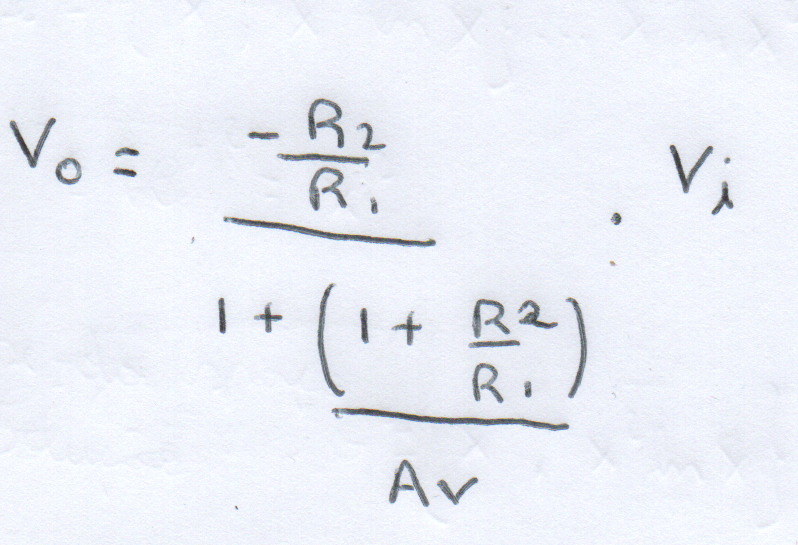 V₀ = -R₂/R₁ / (1 + (1 + R₂/R₁)/Aᵥ) · Vᵢ